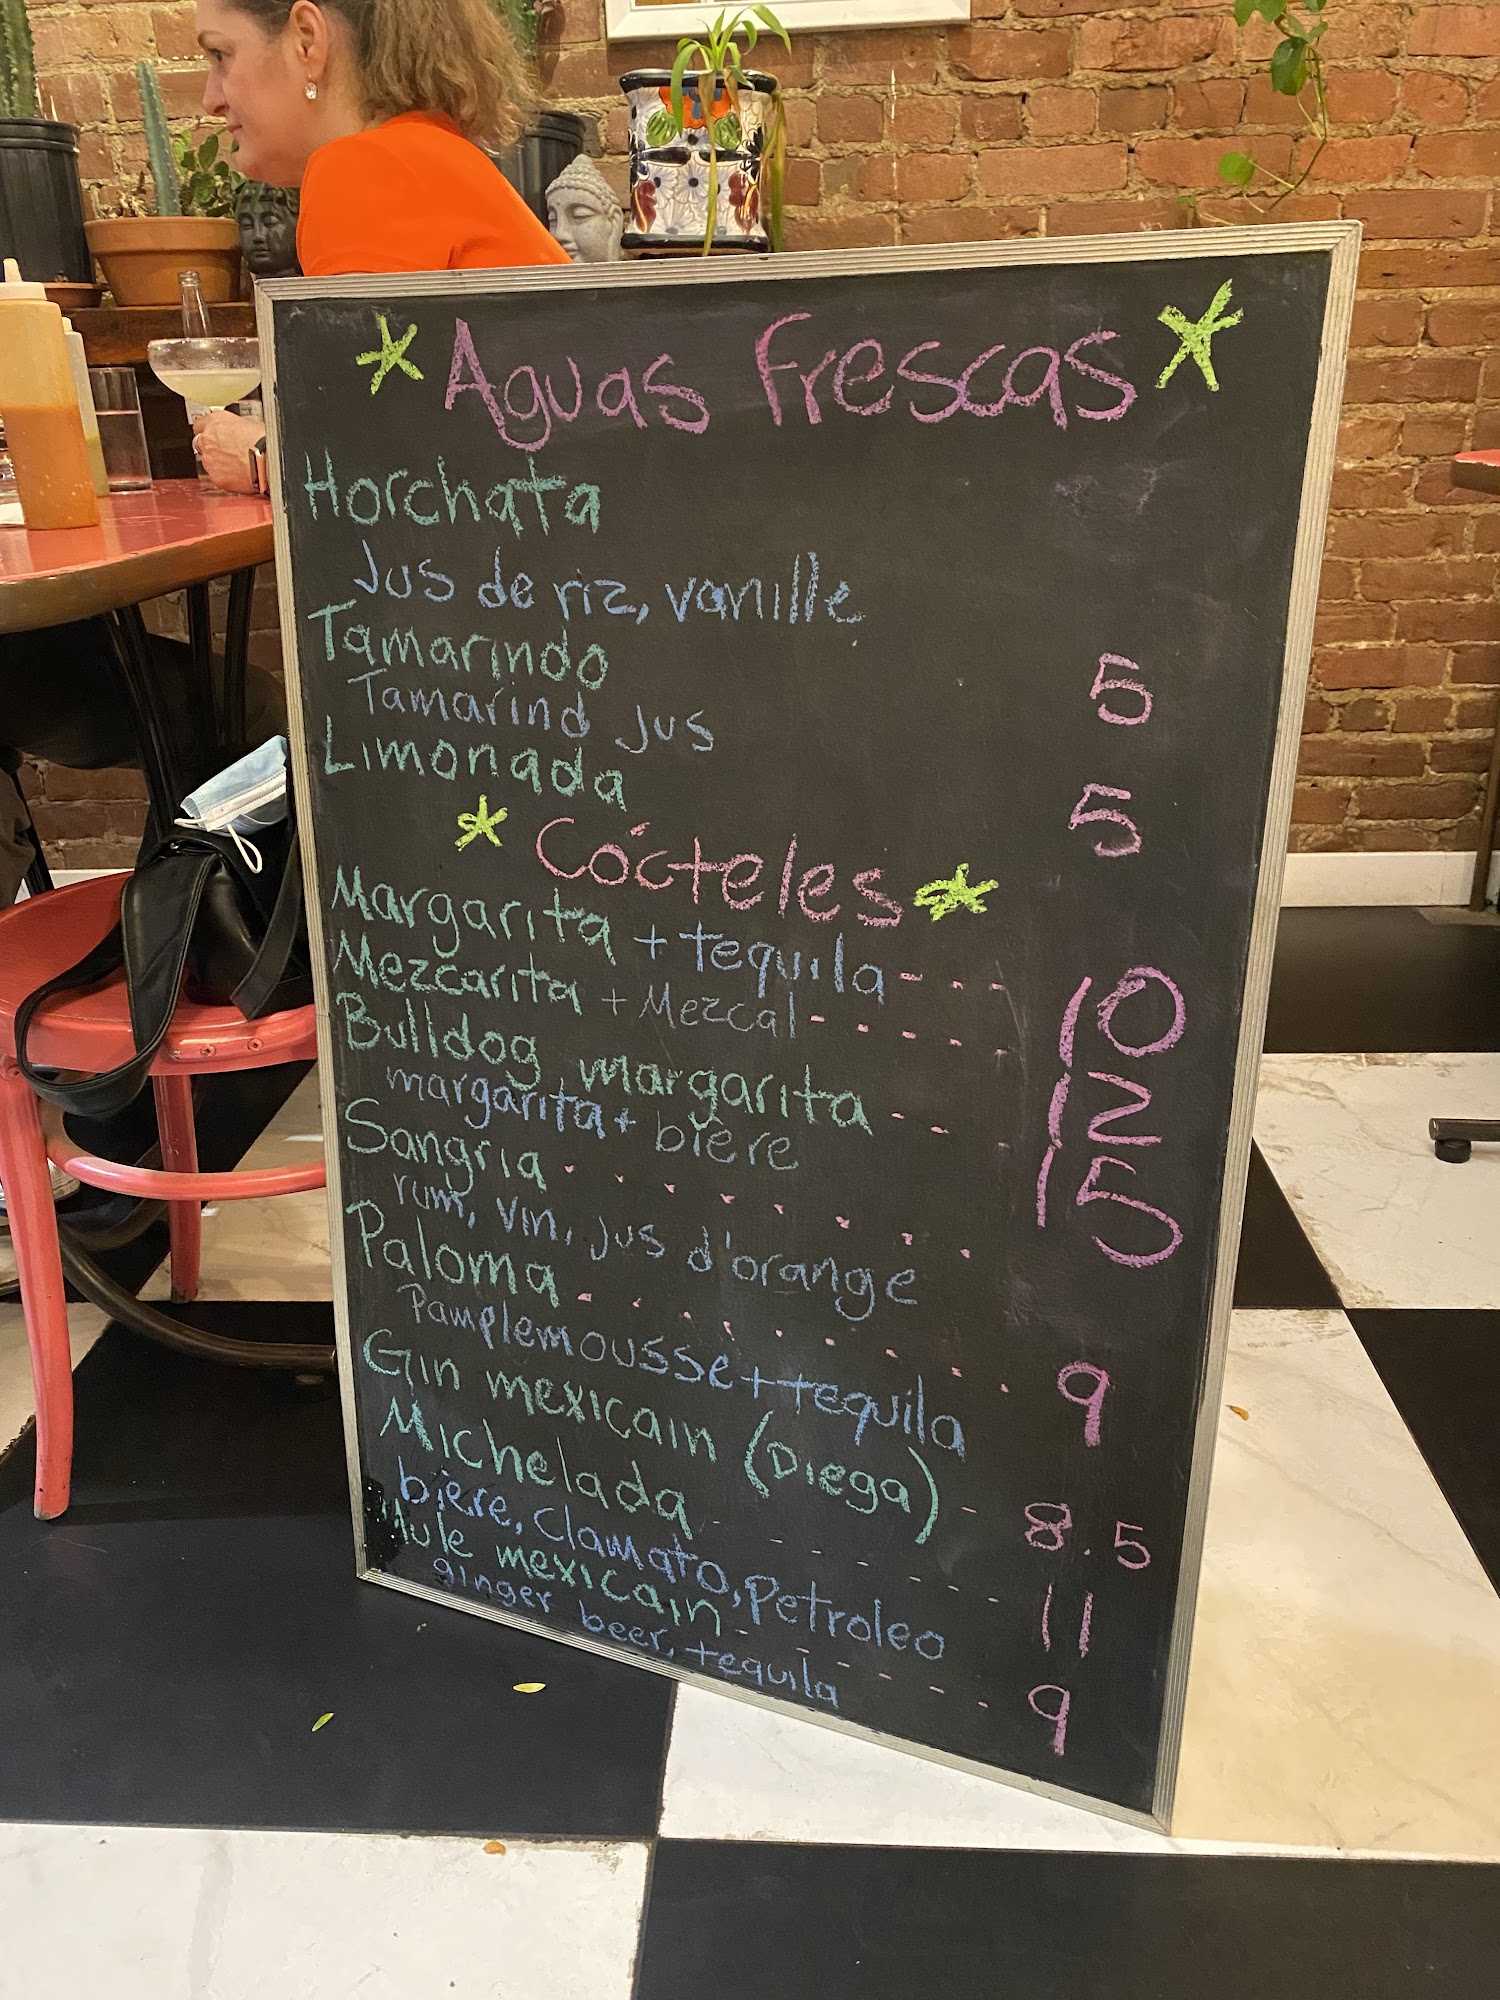 * Aguas Frescas *
Horchata
Jus de riz, vanille
Tamarindo 5
Tamarind jus
Limonada 5
* Cócteles *
Margarita + tequila - - - 10
Mezcarita + Mezcal - - - - - 12
Bulldog margarita - - - 15
margarita + bière
Sangria . . . . . . . . 9
rum, vin, jus d'orange
Paloma . . . . . . . . . 9
Pamplemousse + tequila
Gin mexicain (Diega) - 8.5
Michelada - - - - - - 11
bière, Clamato, Petroleo
Mule mexicain - - - - - - 9
ginger beer, tequila